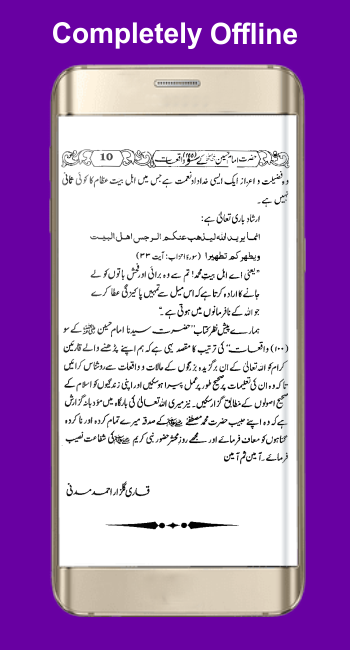 Completely Offline
10 حضرت امام حسین ؓ کے 100 واقعات
وہ فضیلت و اعزاز ایک ایسی خداداد نعمت ہے جس میں اہل بیت عظام کا کوئی ثانی
نہیں ہے۔
ارشاد باری تعالیٰ ہے:
انما یرید اللہ لیذھب عنکم الرجس اھل البیت
ویطھرکم تطھیرا (سورۂ احزاب: آیت ۳۳)
"یعنی اے اہل بیت محمد! تم سے وہ برائی اور فحش باتوں کو لے
جانے کا ارادہ کرتا ہے کہ اس میل سے تمہیں پاکیزگی عطا کرے
جو اللہ کے نافرمانوں میں ہوتی ہے۔"
ہمارے پیش نظر کتاب "حضرت سیدنا امام حسین ؓ کے سو
(۱۰۰) واقعات" کی ترتیب کا مقصد یہی ہے کہ ہم اپنے پڑھنے والے قارئین
کرام کو اللہ تعالیٰ کے ان برگزیدہ بزرگوں کے حالات و واقعات سے روشناس کرائیں
تاکہ وہ ان کی تعلیمات پر صحیح طور پر عمل پیرا ہو سکیں اور اپنی زندگیوں کو اسلام کے
صحیح اصولوں کے مطابق گزار سکیں۔ نیز میری اللہ تعالیٰ کی بارگاہ میں مؤدبانہ گزارش
ہے کہ وہ اپنے حبیب حضرت محمد مصطفےٰ ﷺ کے صدقہ میرے تمام کردہ اور ناکردہ
گناہوں کو معاف فرمائے اور مجھے روز محشر حضور نبی کریم ﷺ کی شفاعت نصیب
فرمائے۔ آمین ثم آمین
قاری گلزار احمد مدنی